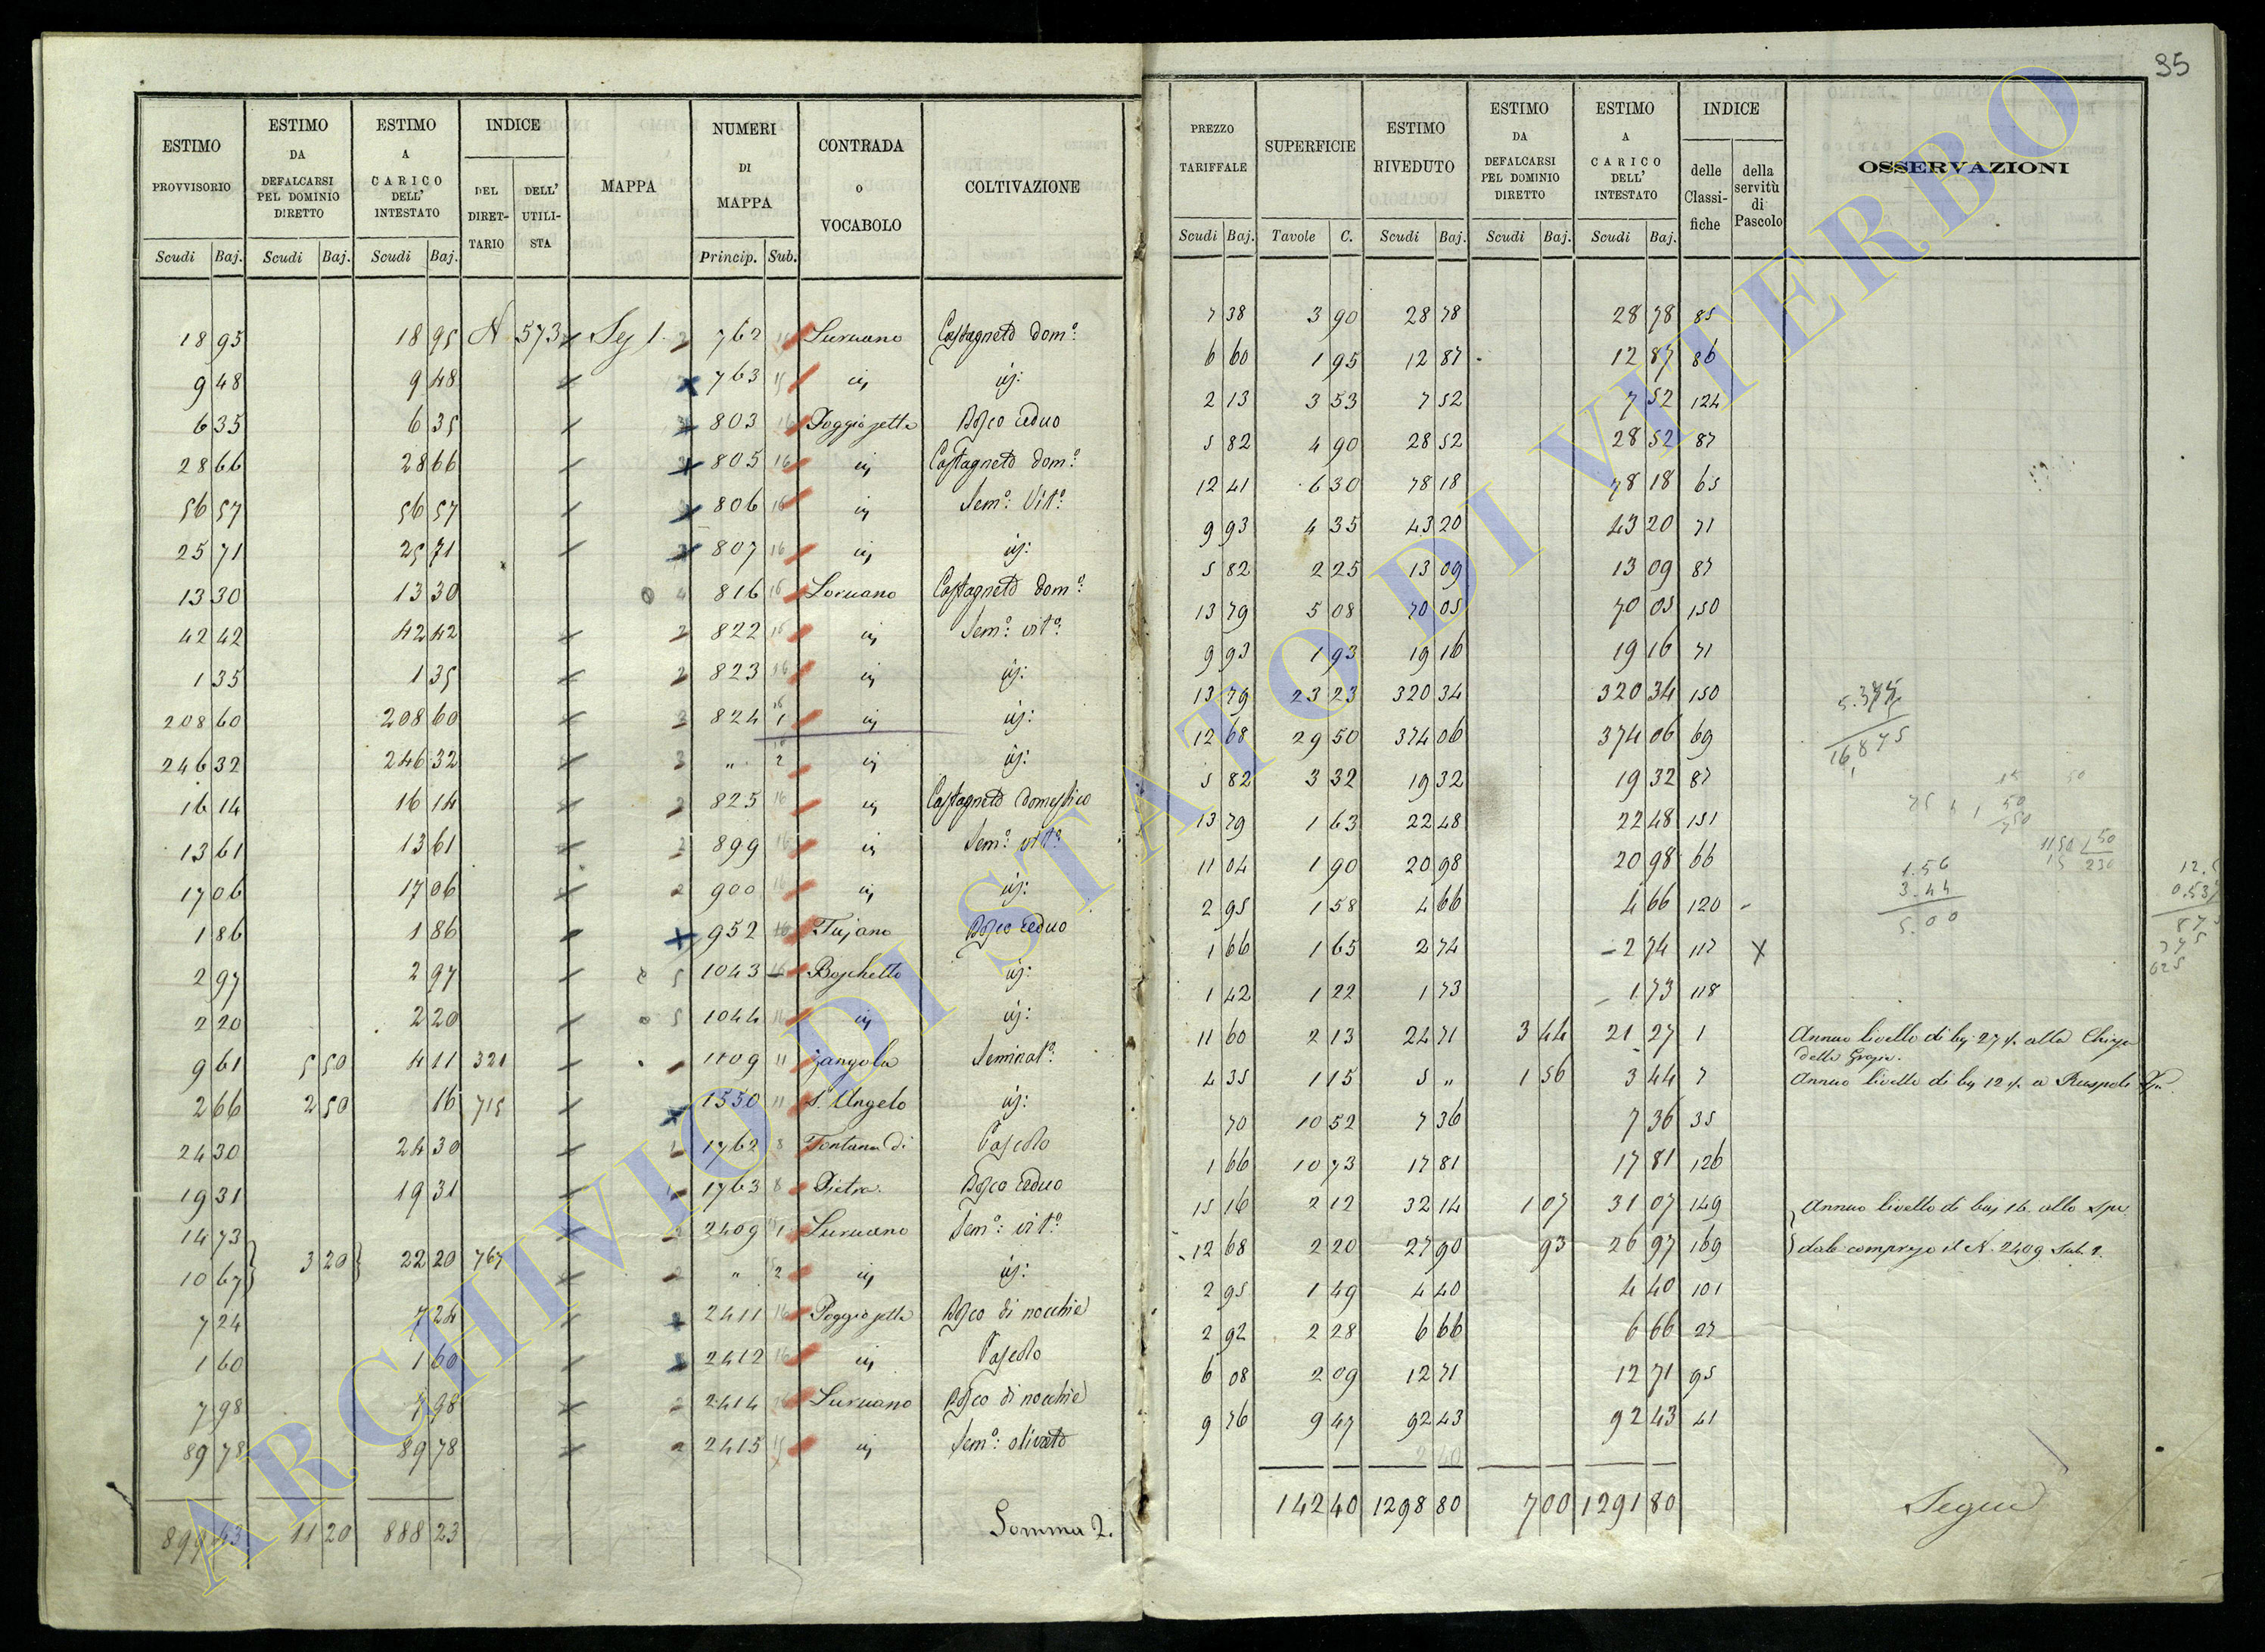 35
ESTIMO PROVVISORIO Scudi Baj.
ESTIMO DA DEFALCARSI PEL DOMINIO DIRETTO Scudi Baj.
ESTIMO A CARICO DELL' INTESTATO Scudi Baj.
INDICE DEL DIRET-TARIO DELL' UTILI-STA
MAPPA
NUMERI DI MAPPA Princip. Sub.
CONTRADA o VOCABOLO
COLTIVAZIONE
PREZZO TARIFFALE Scudi Baj.
SUPERFICIE Tavole C.
ESTIMO RIVEDUTO Scudi Baj.
ESTIMO DA DEFALCARSI PEL DOMINIO DIRETTO Scudi Baj.
ESTIMO A CARICO DELL' INTESTATO Scudi Baj.
INDICE delle Classi-fiche della servitù di Pascolo
OSSERVAZIONI
18 95 18 95 N 573 Sez 1. 2 762 16 Luruano Castagneto dom:º 7 38 3 90 28 78 28 78 85
9 48 9 48 763 15 iɟ iɟ: 6 60 1 95 12 87 12 87 86
6 35 6 35 803 16 Poggio jella Bosco ceduo 2 13 3 53 7 52 7 52 124
28 66 28 66 805 16 iɟ Castagneto dom:º 5 82 4 90 28 52 28 52 87
56 57 56 57 806 16 iɟ Sem:º Vit:º 12 41 6 30 78 18 78 18 65
25 71 25 71 807 16 iɟ iɟ: 9 93 4 35 43 20 43 20 71
13 30 13 30 0 4 816 16 Loruano Castagneto dom:º 5 82 2 25 13 09 13 09 87
42 42 42 42 2 822 16 iɟ Sem:º vit:º 13 79 5 08 70 05 70 05 150
1 35 1 35 2 823 16 iɟ iɟ: 9 93 1 93 19 16 19 16 71
208 60 208 60 2 824 16 1 iɟ iɟ: 13 79 23 23 320 34 320 34 150
246 32 246 32 2 " 16 2 iɟ iɟ: 12 68 29 50 374 06 374 06 69
16 14 16 14 2 825 16 iɟ Castagneto domestico 5 82 3 32 19 32 19 32 87
13 61 13 61 2 899 16 iɟ Sem:º vit:º 13 79 1 63 22 48 22 48 151
17 06 17 06 2 900 16 iɟ iɟ: 11 04 1 90 20 98 20 98 66
1 86 1 86 952 16 Fujano Bosco ceduo 2 95 1 58 4 66 4 66 120
2 97 2 97 5 1043 16 Boschetto iɟ: 1 66 1 65 2 74 2 74 117 X
2 20 2 20 0 5 1044 16 iɟ iɟ: 1 42 1 22 1 73 1 73 118
9 61 5 50 4 11 321 1109 11 Zangola Seminat:º 11 60 2 13 24 71 3 44 21 27 1 Annuo livello di bj. 27½ alla Chiesa
della Grazie.
2 66 2 50 16 715 1550 11 S. Angelo iɟ: 4 35 1 15 5 " 1 56 3 44 7 Annuo livello di bj 12½ a Ruspoli
24 30 24 30 1762 8 Fontana di Pascolo 70 10 52 7 36 7 36 35
19 31 19 31 1763 8 Pietra Bosco ceduo 1 66 10 73 17 81 17 81 126
14 73 2409 1 Luruano Sem:º vit:º 15 16 2 12 32 14 1 07 31 07 149 Annuo livello di baj 16. allo Spe
10 67 3 20 22 20 767 2 " 2 iɟ iɟ: 12 68 2 20 27 90 93 26 97 169 dale compreso il N. 2409 Sub. 2.
7 24 7 24 2411 16 Poggio jella Bosco di nocchie 2 95 1 49 4 40 4 40 101
1 60 1 60 2412 16 iɟ Pascolo 2 92 2 28 6 66 6 66 27
7 98 7 98 2 2414 16 Luruano Bosco di nocchie 6 08 2 09 12 71 12 71 95
89 78 89 78 2 2415 15 iɟ Sem:º olivato 9 76 9 47 92 43 92 43 41
899 43 11 20 888 23 Somma 2. 142 40 1298 80 7 00 1291 80 Segue
16,875
50
750
1150
230
1.56
3.44
5.00
875
375
025
ARCHIVIO DI STATO DI VITERBO